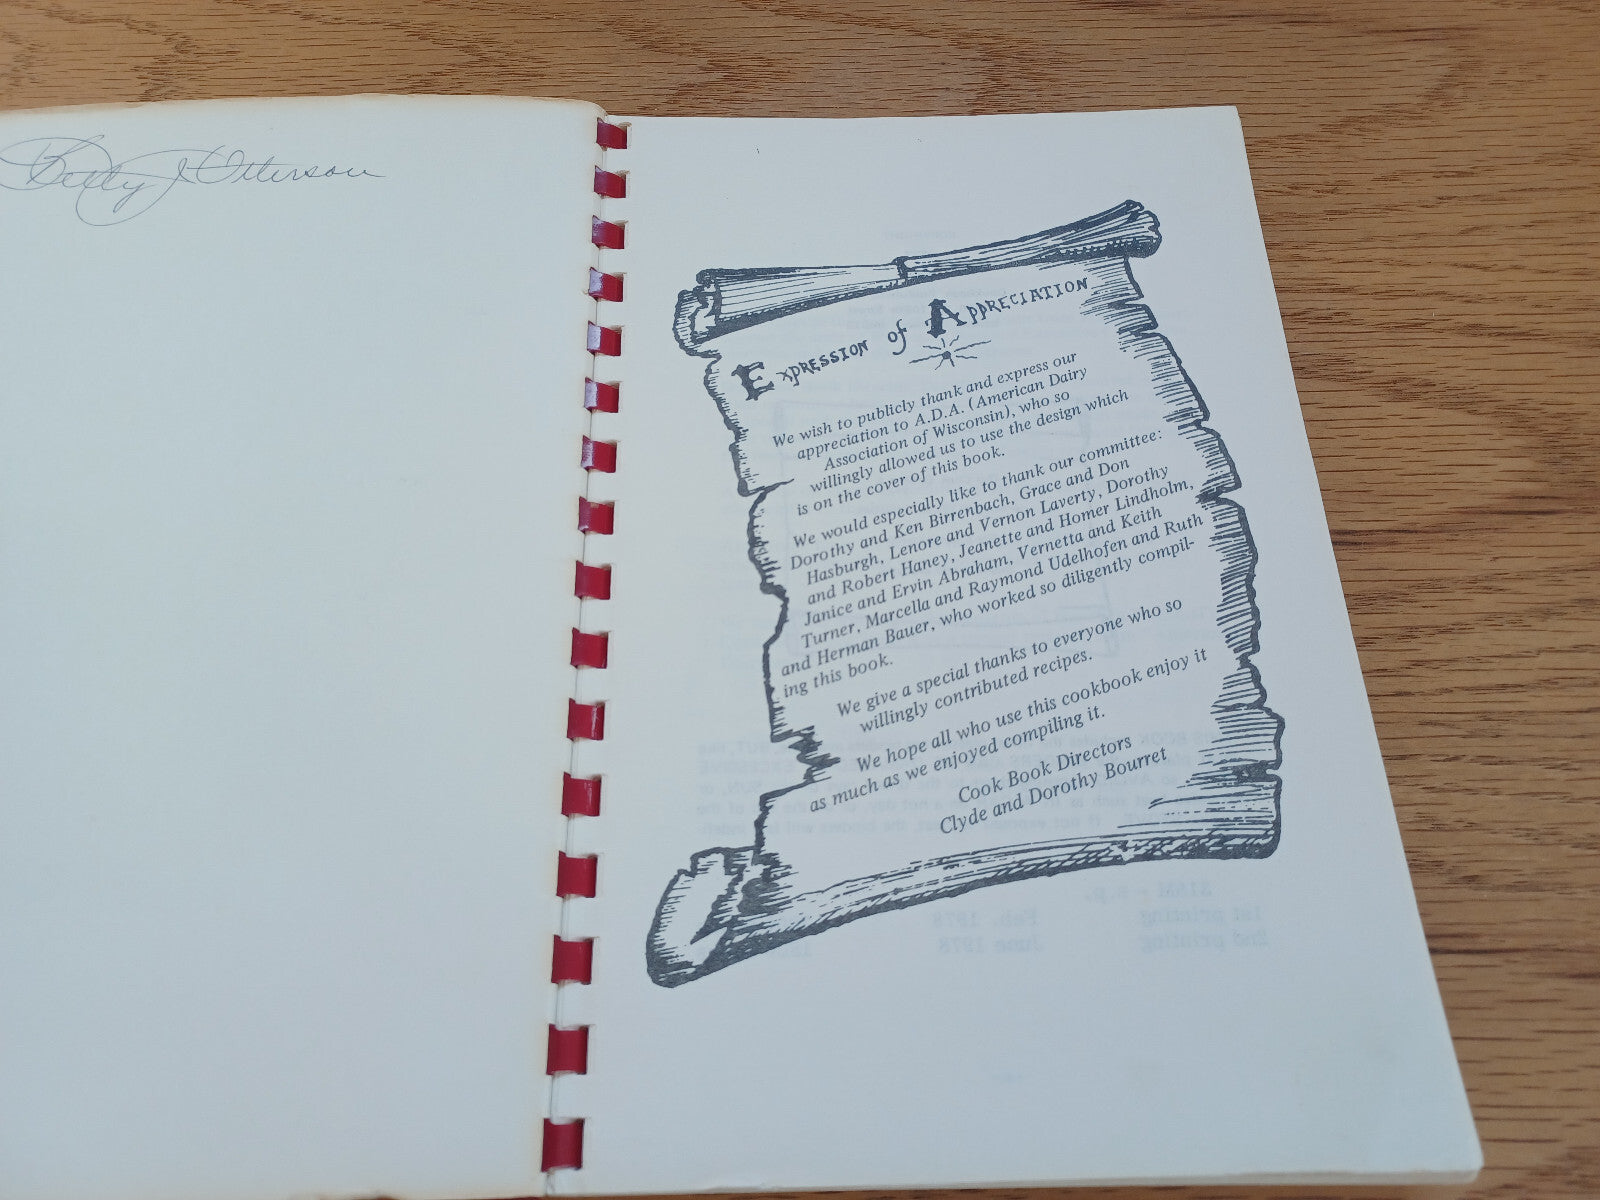 Betty J Otterson
Expression of Appreciation
We wish to publicly thank and express our
appreciation to A.D.A. (American Dairy
Association of Wisconsin), who so
willingly allowed us to use the design which
is on the cover of this book.
We would especially like to thank our committee:
Dorothy and Ken Birrenbach, Grace and Don
Hasburgh, Lenore and Vernon Laverty, Dorothy
and Robert Haney, Jeanette and Homer Lindholm,
Janice and Ervin Abraham, Vernetta and Keith
Turner, Marcella and Raymond Udelhofen and Ruth
and Herman Bauer, who worked so diligently compil-
ing this book.
We give a special thanks to everyone who so
willingly contributed recipes.
We hope all who use this cookbook enjoy it
as much as we enjoyed compiling it.
Cook Book Directors
Clyde and Dorothy Bourret
1st printing Feb. 1978
2nd printing June 1978